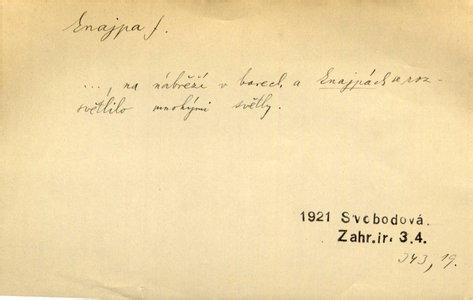 Enajpa f.
..., na nábřeží v barech a Enajpách se roz-
světlilo mnohými světly.
1921 Svobodová.
Zahr.ir. 3.4.
343, 19.